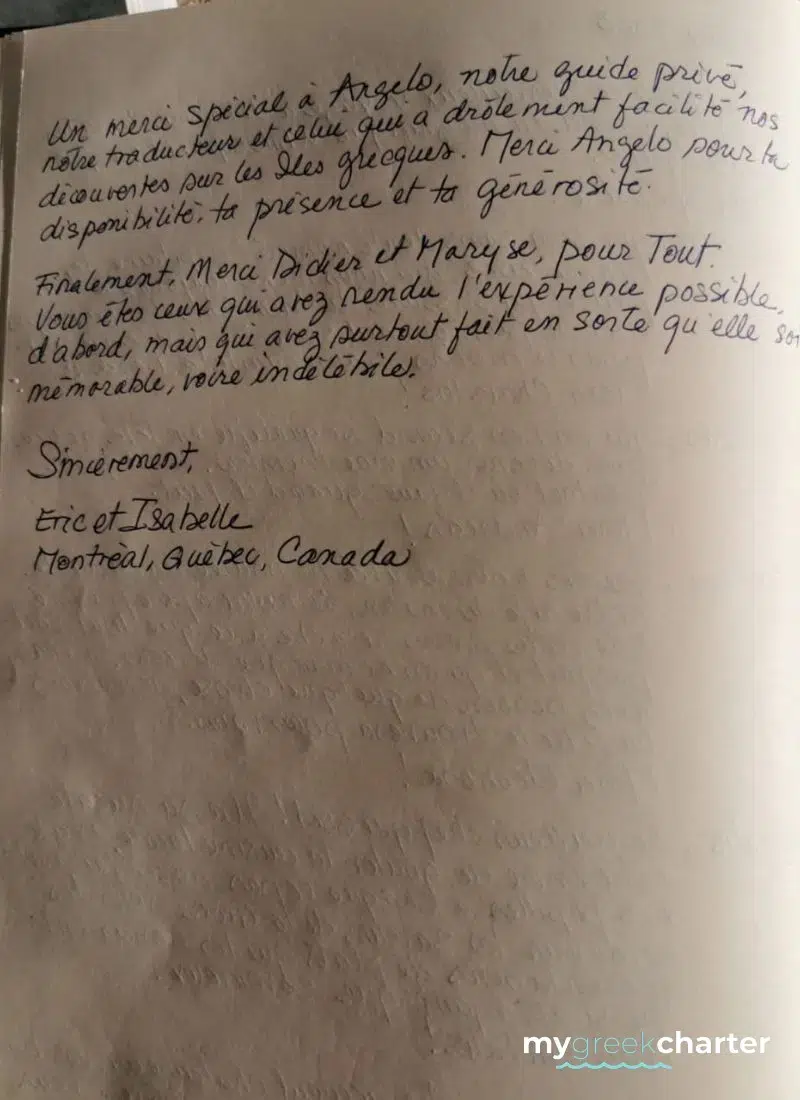 Un merci spécial à Angelo, notre guide privé,
notre traducteur et celui qui a drôlement facilité nos
découvertes sur les Îles grecques. Merci Angelo pour ta
disponibilité, ta présence et ta générosité.
Finalement, Merci Didier et Maryse, pour Tout.
Vous êtes ceux qui avez rendu l'expérience possible,
d'abord, mais qui avez surtout fait en sorte qu'elle soi
mémorable, voire indélébile.
Sincèrement,
Eric et Isabelle
Montréal, Québec, Canada
mygreekcharter